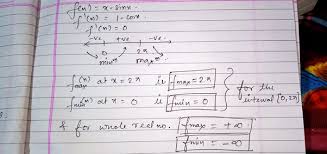 f(x) = x - sinx.
f'(x) = 1 - cosx.
f'(x) = 0
-ve. +ve -ve.
0 2π
min^m max^m
f(x) max at x = 2π is fmax = 2π
f(x) min at x = 0 is fmin = 0
for the interval [0, 2π]
& for whole real no. fmax = +∞
fmin = -∞